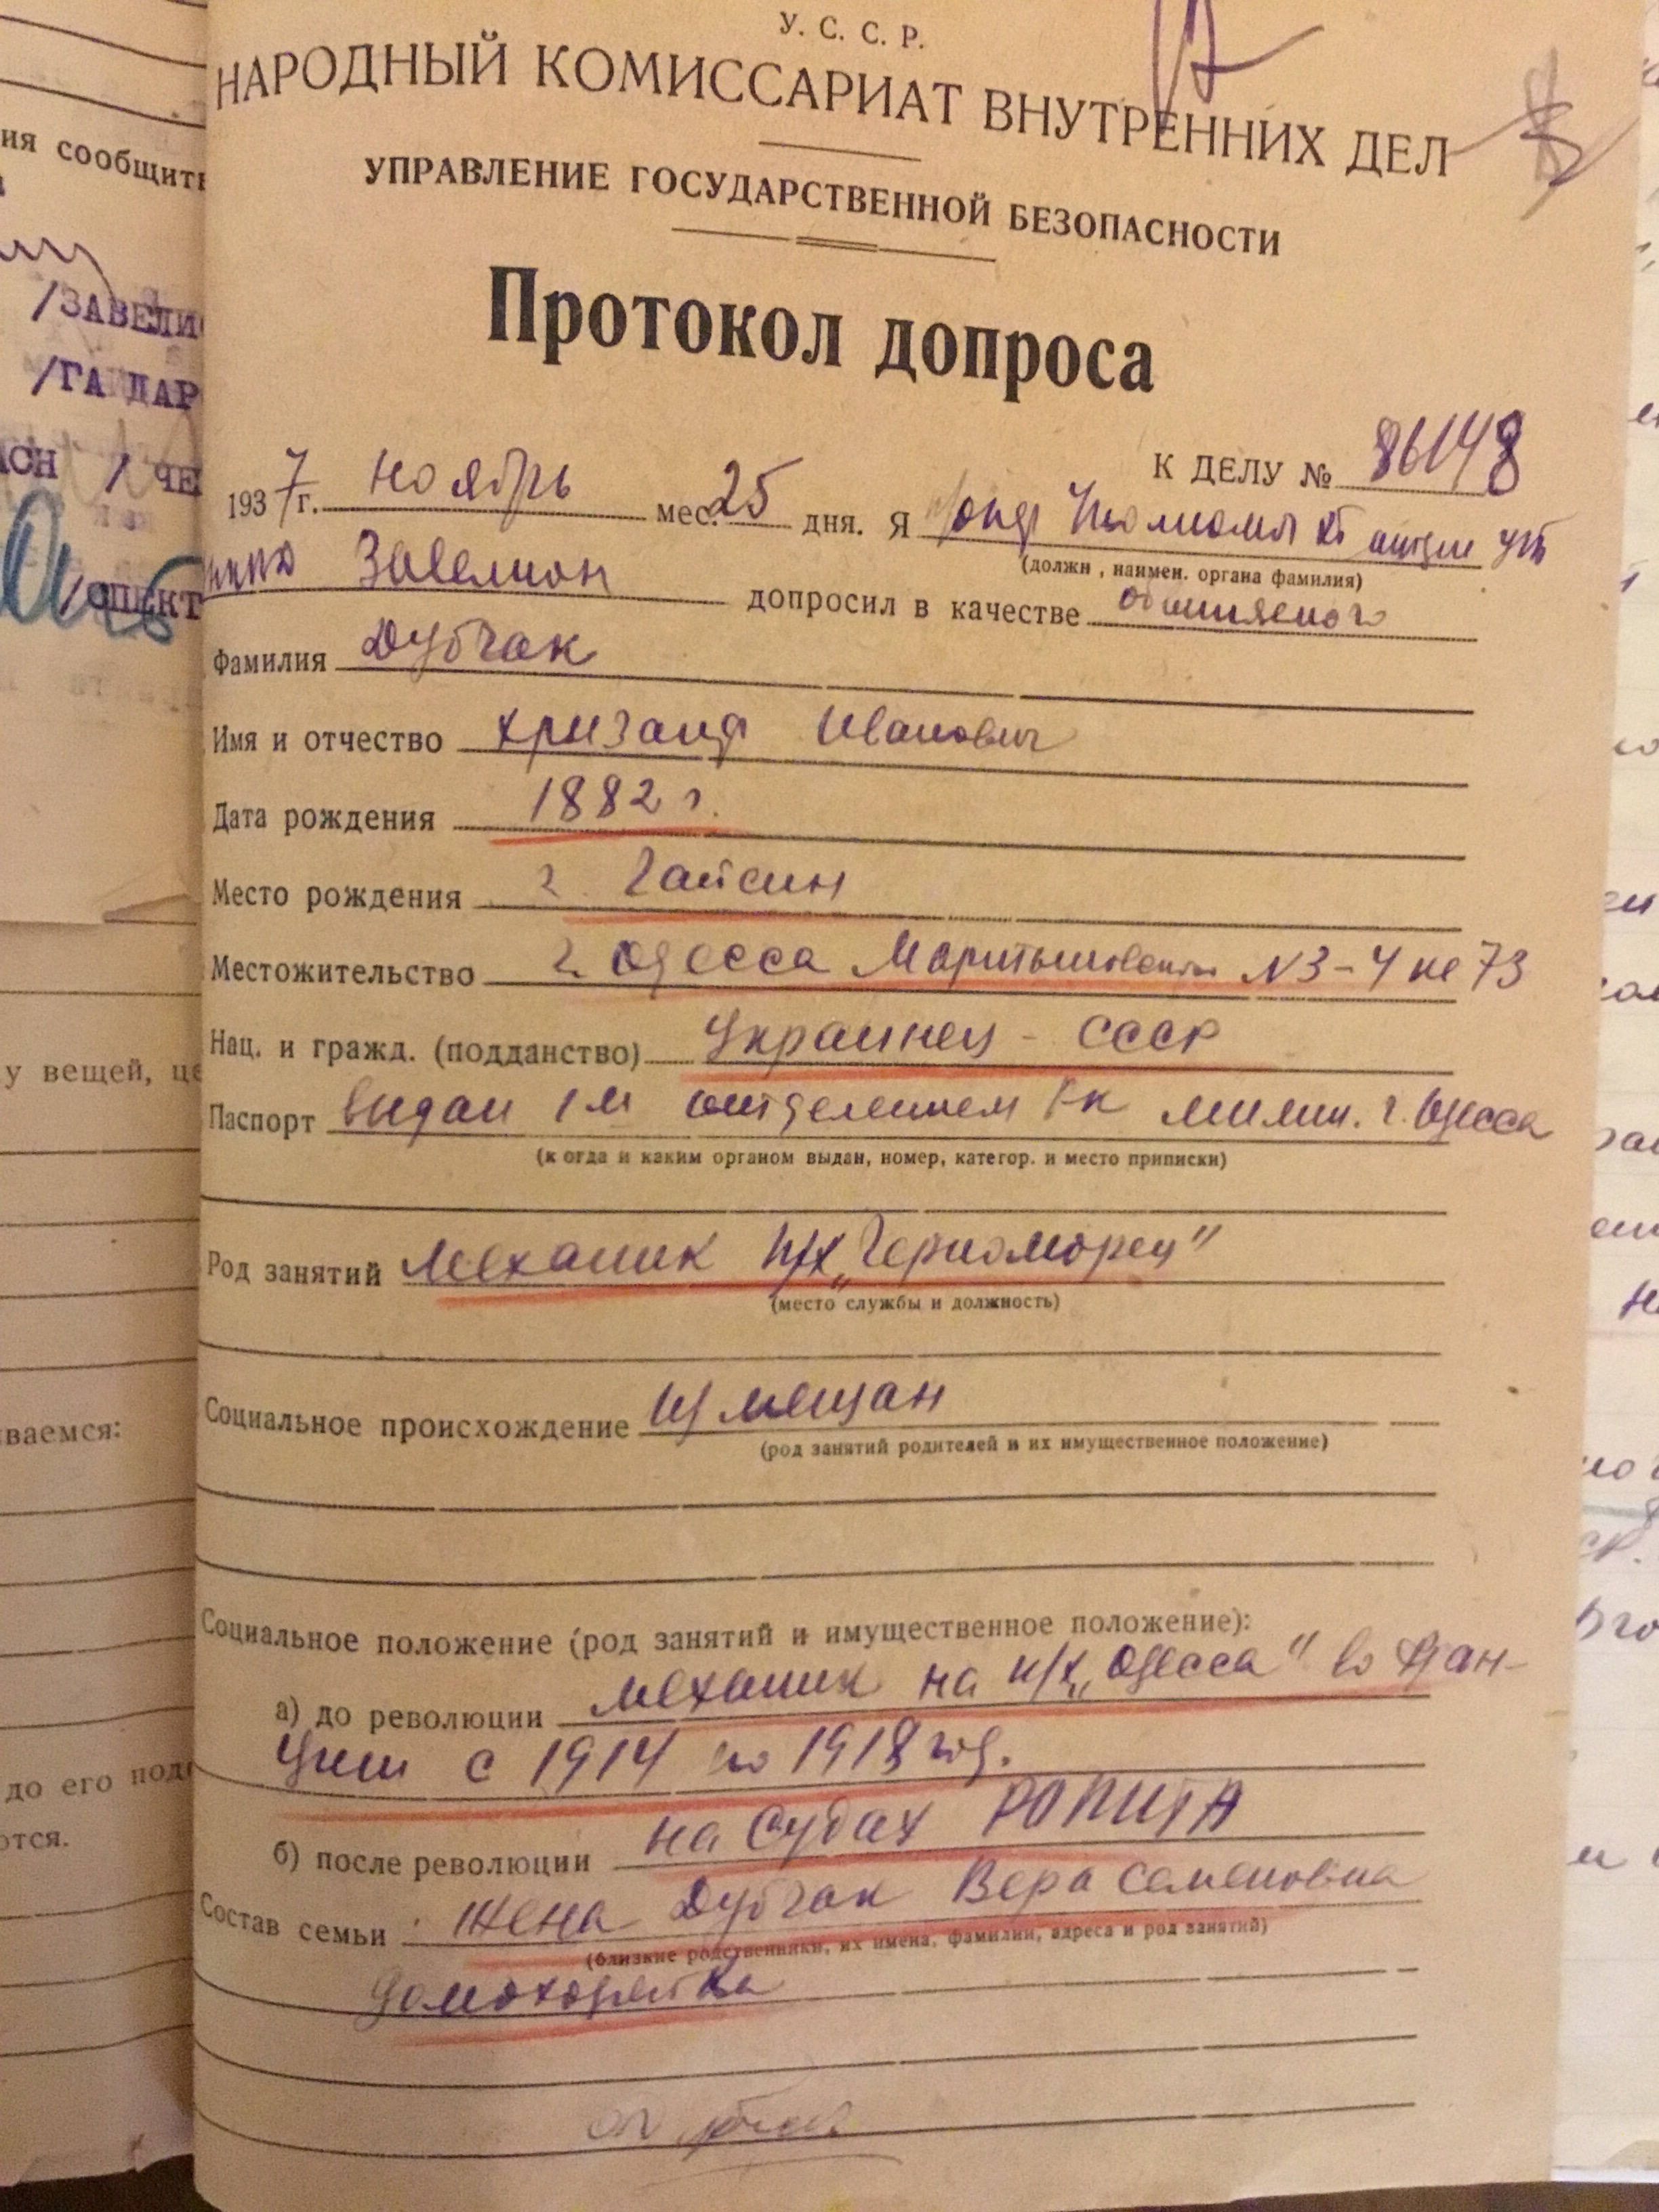 У. С. С. Р.
НАРОДНЫЙ КОМИССАРИАТ ВНУТРЕННИХ ДЕЛ
УПРАВЛЕНИЕ ГОСУДАРСТВЕННОЙ БЕЗОПАСНОСТИ
Протокол допроса
К ДЕЛУ № 86148
1937 г. ноябрь мес. 25 дня. Я
(должн, наимен. органа фамилия)
Завелион допросил в качестве обвиняемого
Фамилия Дубчак
Имя и отчество Хризанф Иванович
Дата рождения 1882 г.
Место рождения г. Гайсин
Местожительство г. Одесса N 3-4 73
Нац. и гражд. (подданство) Украинец - СССР
Паспорт выдан 1м отделением Р-к милиц. г. Одесса
(когда и каким органом выдан, номер, категор. и место приписки)
Род занятий Механик п/х „Черноморец"
(место службы и должность)
Социальное происхождение Из мещан
(род занятий родителей и их имущественное положение)
Социальное положение (род занятий и имущественное положение):
а) до революции механик на п/х „Одесса" во Фран-
ции с 1914 по 1918 год.
б) после революции на судах РОПИТА
Состав семьи жена Дубчак Вера Семеновна
(близкие родственники, их имена, фамилии, адреса и род занятий)
домохозяйка
ия сообщить
/ЗАВЕЛИО
/ГАЙДАР
АСН / ЧЕ
у вещей, це
ваемся:
до его подп
ются.